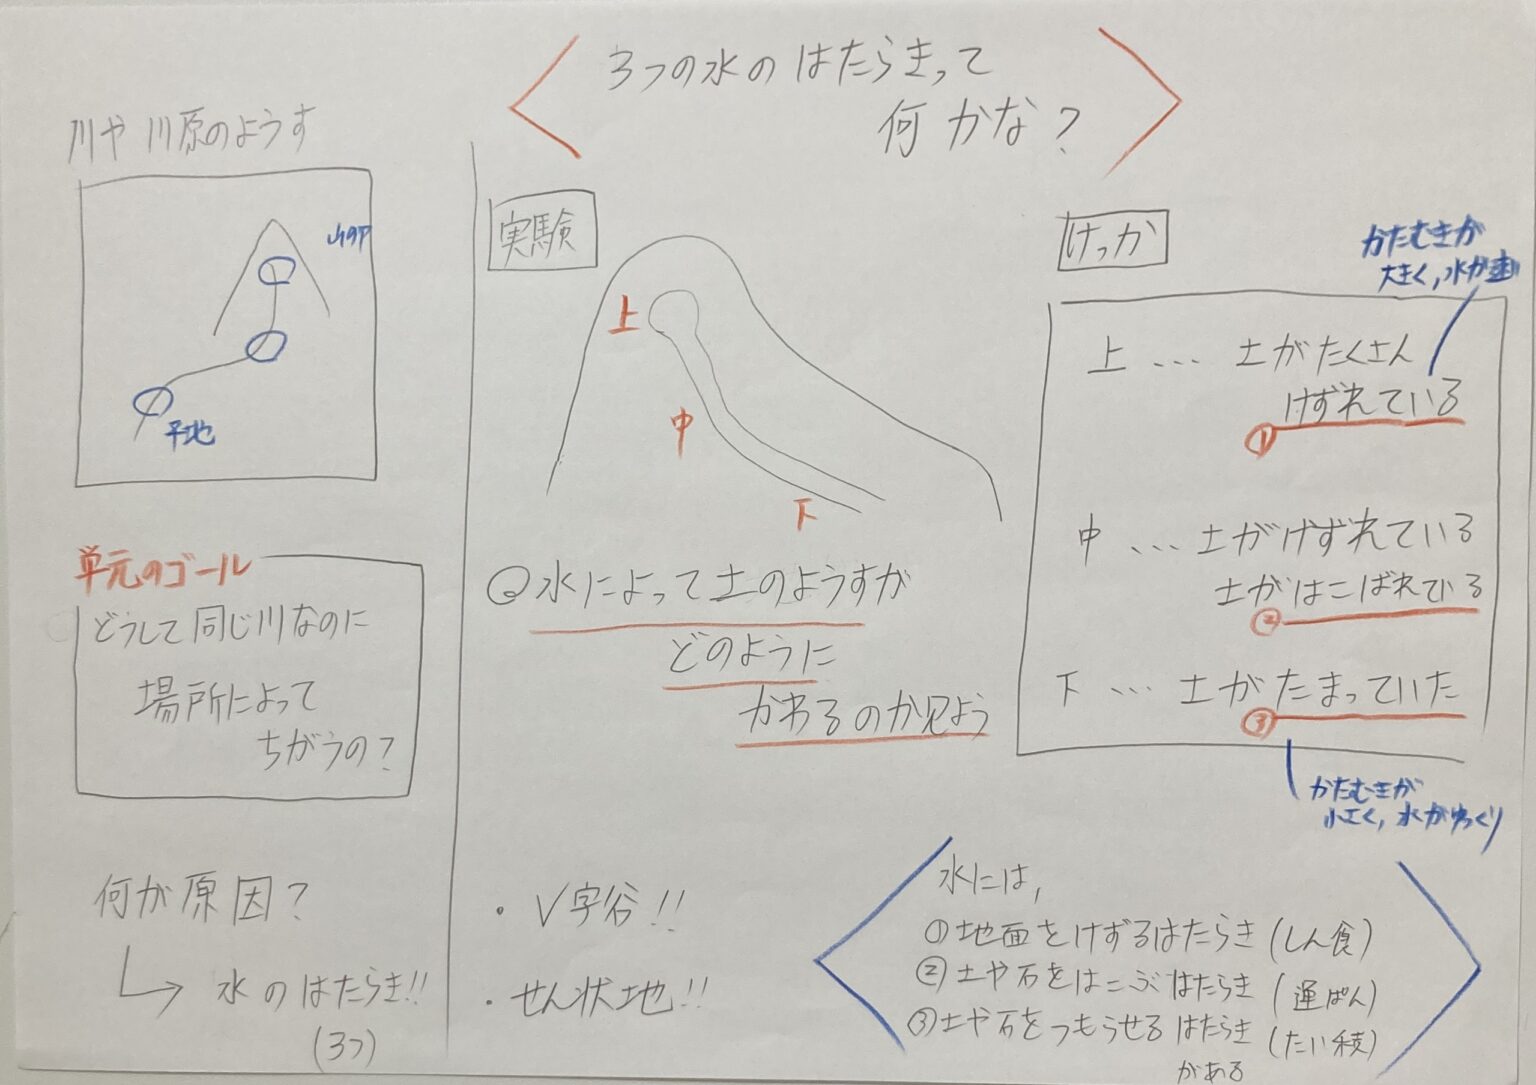 3つの水のはたらきって
何かな?
川や川原のようす
山の中
平地
単元のゴール
どうして同じ川なのに
場所によって
ちがうの?
何が原因?
水のはたらき!!
(3つ)
実験
上
中
下
◎水によって土のようすが
どのように
かわるのか見よう
・V字谷!!
・せん状地!!
けっか
かたむきが
大きく,水が速い
上…土がたくさん
けずれている
①
中…土がけずれている
土がはこばれている
②
下…土がたまっていた
③
かたむきが
小さく,水がゆっくり
水には,
①地面をけずるはたらき(しん食)
②土や石をはこぶはたらき(運ぱん)
③土や石をつもらせるはたらき(たい積)
がある